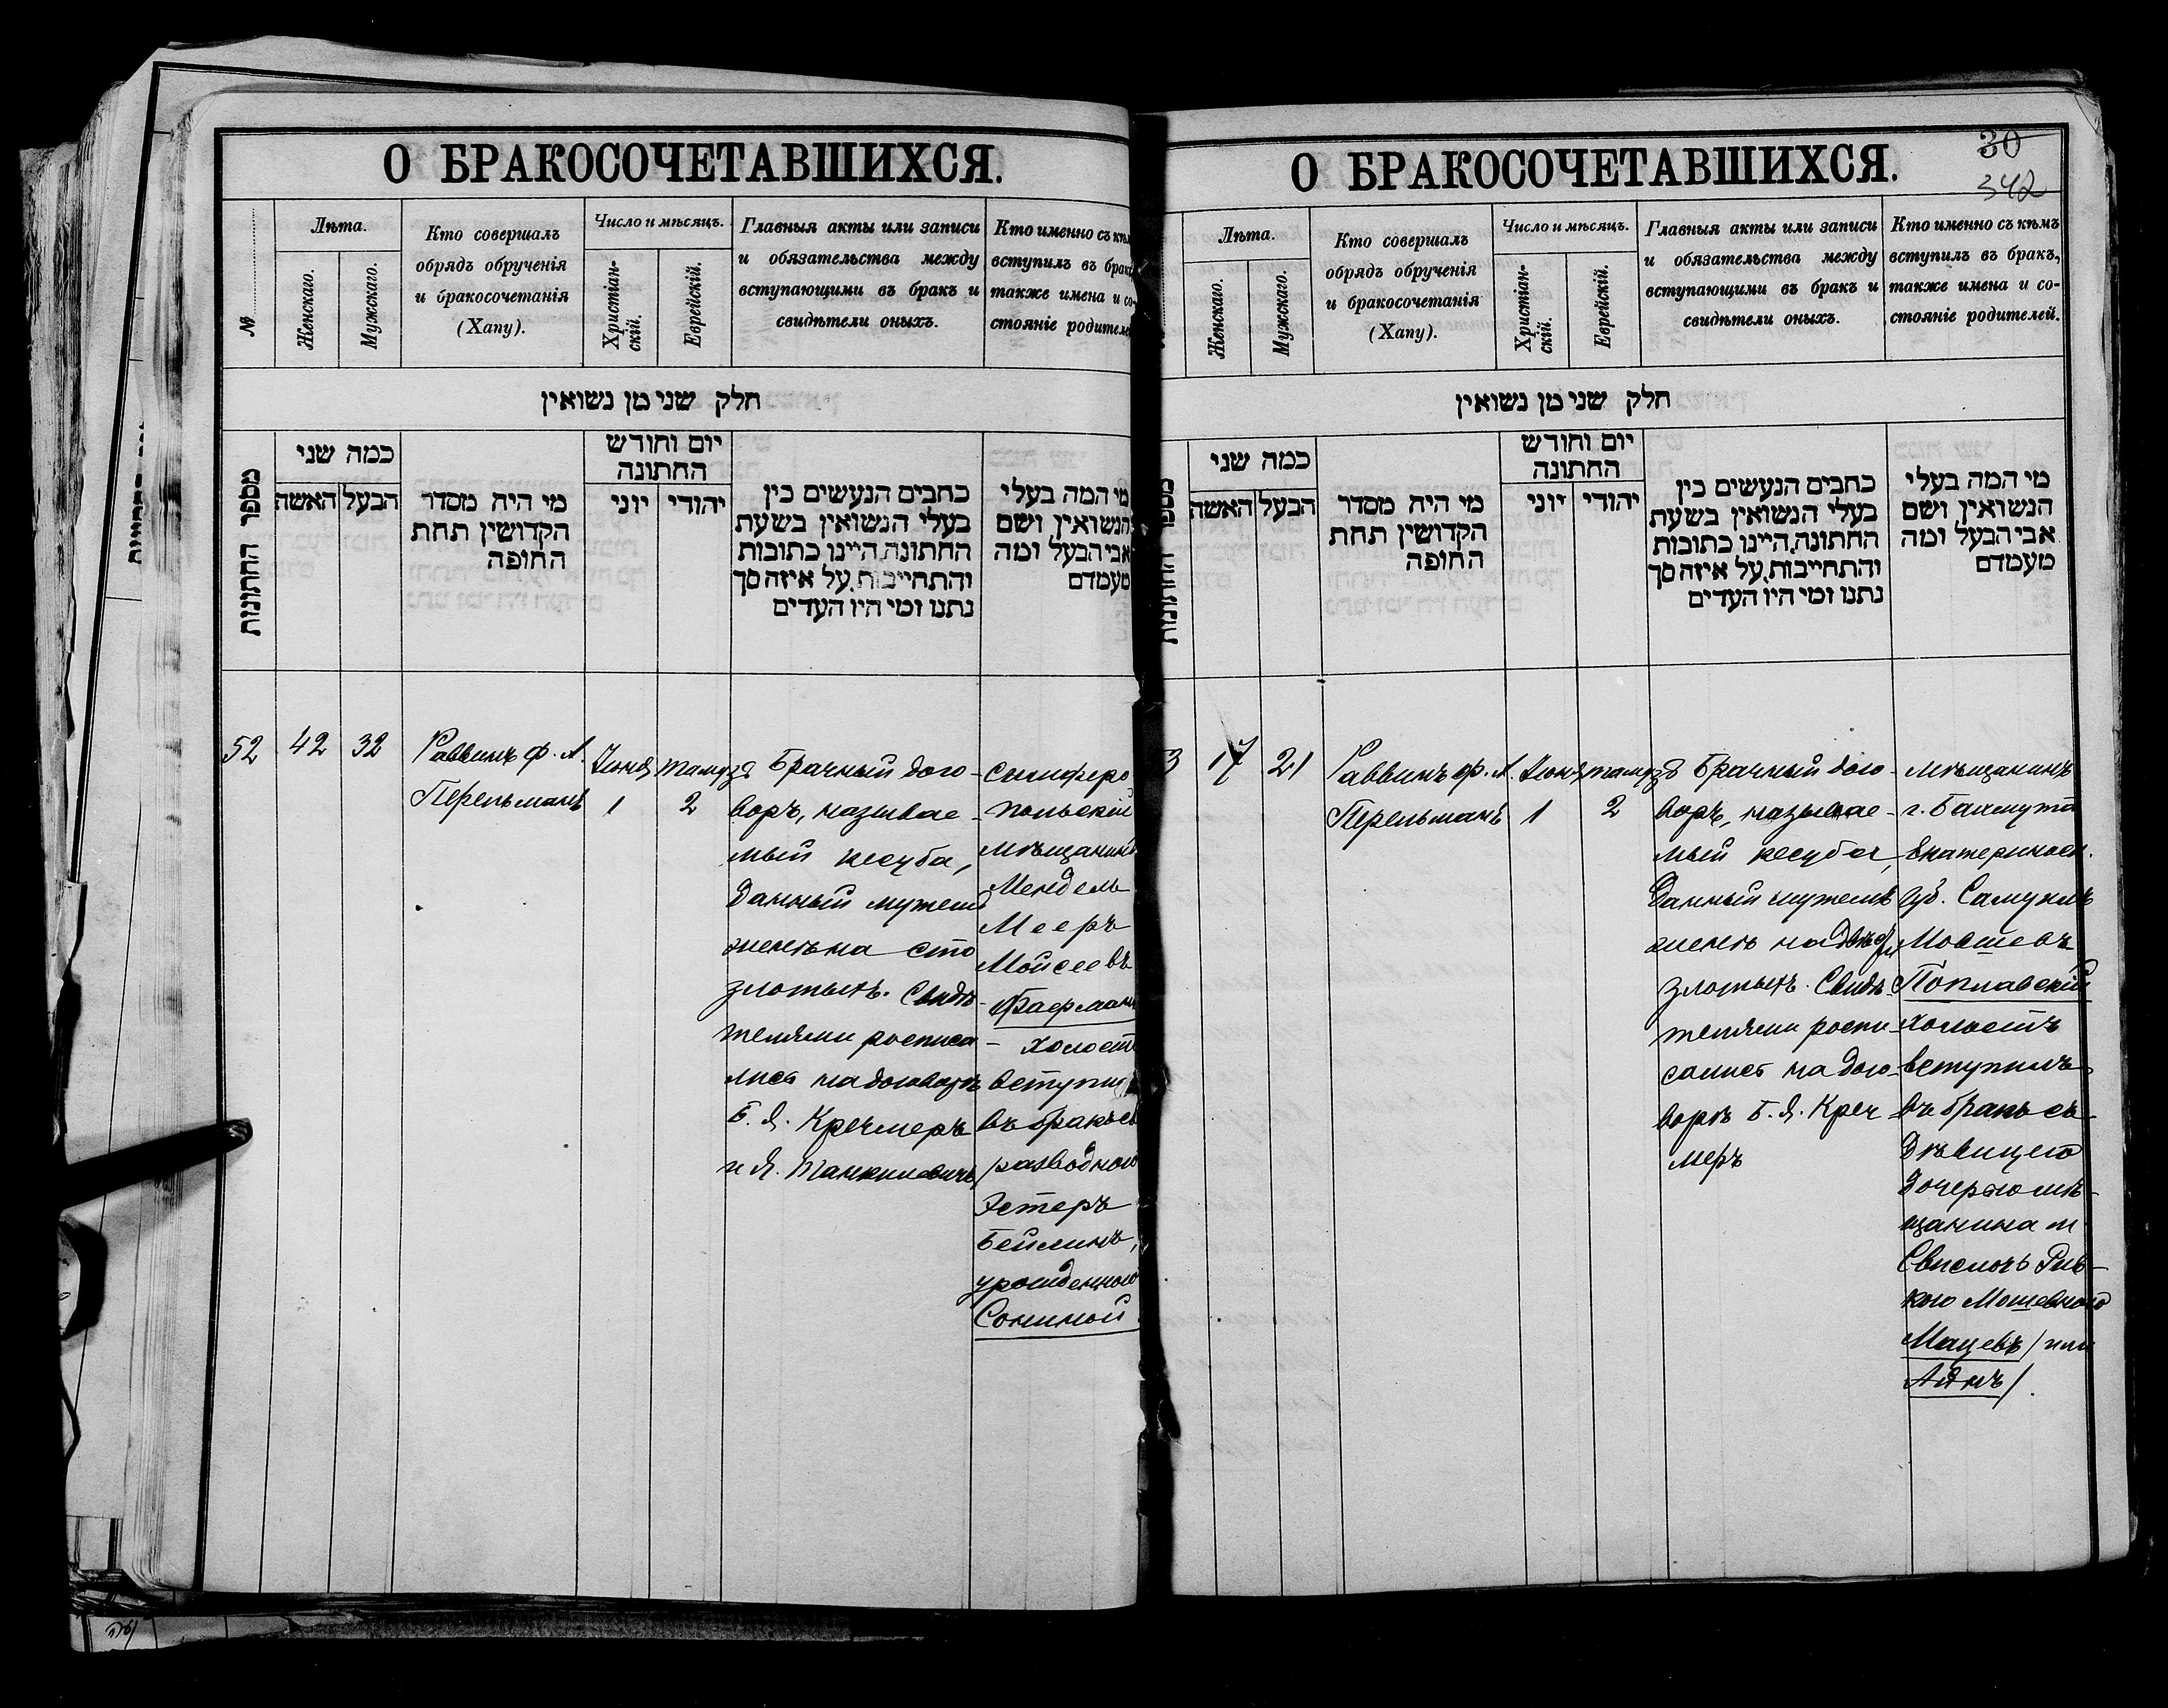 О БРАКОСОЧЕТАВШИХСЯ.
№
Лѣта.
Женскаго.
Мужскаго.
Кто совершалъ
обрядъ обрученія
и бракосочетанія
(Хапу).
Число и мѣсяцъ.
Христіан-
скій.
Еврейскій.
Главныя акты или записи
и обязательства между
вступающими въ бракъ и
свидѣтели оныхъ.
Кто именно съ
вступилъ въ
также имена и со-
стояніе
חלק שני מן נשואין
מספר החתונות
כמה שני
האשה
הבעל
מי היה מסדר
הקדושין תחת
החופה
יום וחודש
החתונה
יוני
יהודי
כתבים הנעשים בין
בעלי הנשואין בשעת
החתונה, היינו כתובות
והתחייבות, על איזה סך
נתנו ומי היו העדים
מי המה בעלי
הנשואין ושם
אבי הבעל ומה
מעמדם
52
42
32
Раввинъ Ф. А.
Перельманъ
Іюня
1
Тамуза
2
Брачный дого-
воръ, называе-
мый кесуба,
данный мужемъ
женѣ на сто
злотыхъ. Свидѣ-
телями росписа-
лись на договорѣ
Б. Я. Кречмеръ
и Я. Танкилевичъ
Симферо
польскій
мѣщанинъ
Мендель
Мееръ
Мойсеевъ
холостъ
вступилъ
въ бракъ съ
разводною
Эстеръ
Бейлинъ,
урожденною
Сониной.
О БРАКОСОЧЕТАВШИХСЯ.
30
342
Лѣта.
Женскаго.
Мужскаго.
Кто совершалъ
обрядъ обрученія
и бракосочетанія
(Хапу).
Число и мѣсяцъ.
Христіан-
скій.
Еврейскій.
Главныя акты или записи
и обязательства между
вступающими въ бракъ и
свидѣтели оныхъ.
Кто именно съ кѣмъ
вступилъ въ бракъ,
также имена и со-
стояніе родителей.
חלק שני מן נשואין
החתונות
כמה שני
האשה
הבעל
מי היה מסדר
הקדושין תחת
החופה
יום וחודש
החתונה
יוני
יהודי
כתבים הנעשים בין
בעלי הנשואין בשעת
החתונה, היינו כתובות
והתחייבות, על איזה סך
נתנו ומי היו העדים
מי המה בעלי
הנשואין ושם
אבי הבעל ומה
מעמדם
3
17
21
Раввинъ Ф. А.
Перельманъ
Іюня
1
Тамуза
2
Брачный дого-
воръ, называе-
мый кесуба,
данный мужемъ
женѣ на двѣсти
злотыхъ. Свидѣ-
телями роспи-
сались на дого-
ворѣ Б. Я. Креч
меръ
Мѣщанинъ
г. Бахмута
Екатериносл.
губ. Самуилъ
Мовшевъ
Поплавскій
холостъ
вступилъ
въ бракъ съ
дѣвицею
дочерью мѣ-
щанина м.
Свислочь Рив-
кою Мошевною
Мацевъ / или